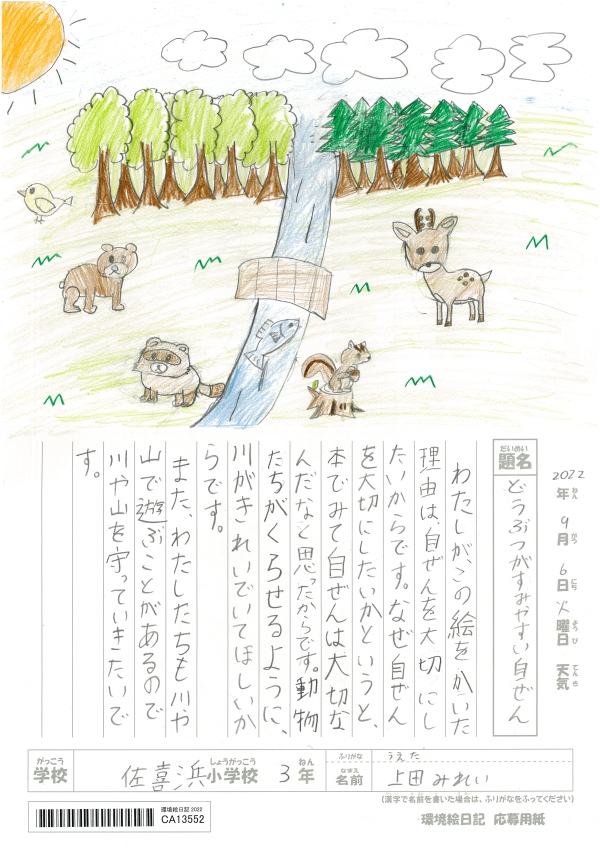 2022年ねん 9月がつ 6日にち 火曜日ようび 天気てんき
だいめい
題名
どうぶつがすみやすい自ぜん
わたしが、この絵をかいた
理由は、自ぜんを大切にし
たいからです。なぜ自ぜん
を大切にしたいかというと、
本でみて自ぜんは大切な
んだなと思ったからです。動物
たちがくらせるように、
川がきれいでいてほしいか
らです。
また、わたしたちも川や
山で遊ぶことがあるので
川や山を守っていきたいで
す。
がっこう
学校
佐喜浜小学校しょうがっこう 3年ねん
ふりがな
うえた
なまえ
名前
上田みれい
(漢字で名前を書いた場合は、ふりがなをふってください)
環境絵日記 2022
CA13552
環境絵日記 応募用紙